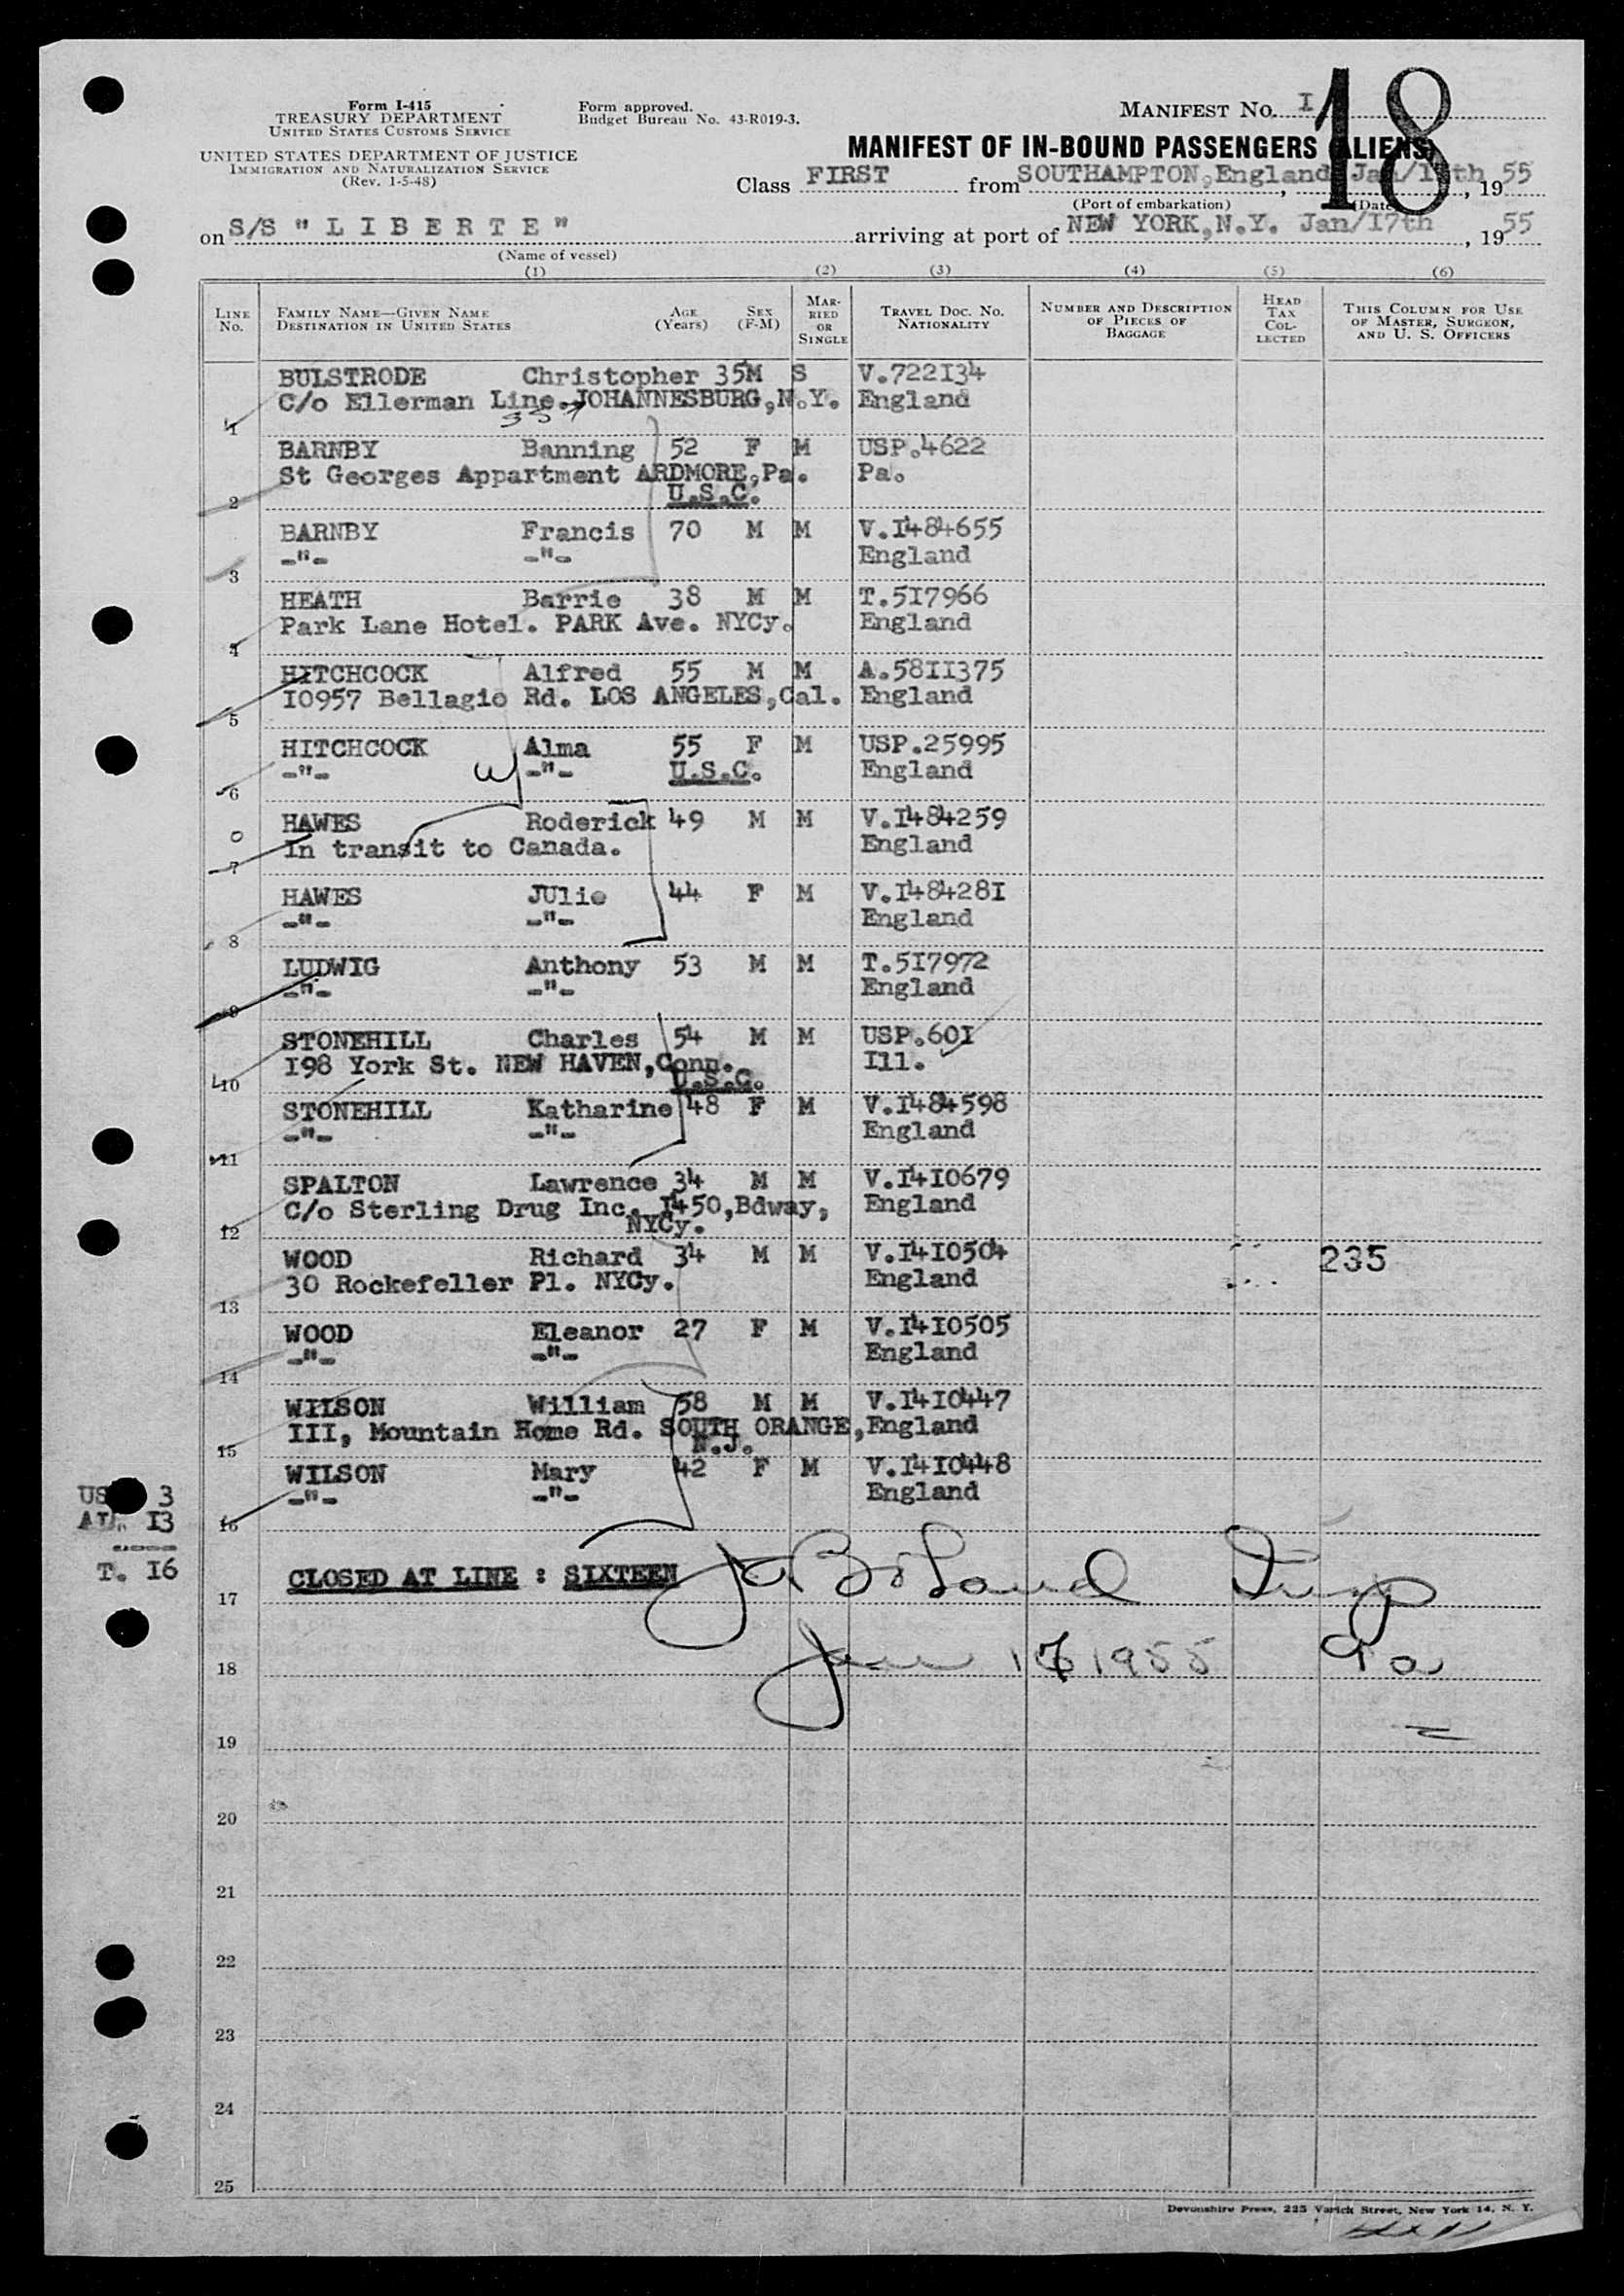 Form I-415
TREASURY DEPARTMENT
UNITED STATES CUSTOMS SERVICE
UNITED STATES DEPARTMENT OF JUSTICE
IMMIGRATION AND NATURALIZATION SERVICE
(Rev. 1-5-48)
Form approved.
Budget Bureau No. 43-R019-3.
MANIFEST No. I
18
MANIFEST OF IN-BOUND PASSENGERS (ALIENS)
Class FIRST from SOUTHAMPTON, England, Jan/ th, 1955
(Port of embarkation) (Date)
on S/S "LIBERTE" arriving at port of NEW YORK, N.Y. Jan/17th, 1955
(Name of vessel)
(1) (2) (3) (4) (5) (6)
LINE No. FAMILY NAME—GIVEN NAME DESTINATION IN UNITED STATES AGE (Years) SEX (F-M) MARRIED OR SINGLE TRAVEL DOC. NO. NATIONALITY NUMBER AND DESCRIPTION OF PIECES OF BAGGAGE HEAD TAX COLLECTED THIS COLUMN FOR USE OF MASTER, SURGEON, AND U. S. OFFICERS
BULSTRODE Christopher 35M S V.722I34
1 C/o Ellerman Line. JOHANNESBURG,N.Y. England
BARNBY Banning 52 F M USP.4622
St Georges Appartment ARDMORE,Pa. Pa.
2 U.S.C.
BARNBY Francis 70 M M V.I484655
3 -"- -"- England
HEATH Barrie 38 M M T.5I7966
4 Park Lane Hotel. PARK Ave. NYCy. England
HITCHCOCK Alfred 55 M M A.58II375
5 I0957 Bellagio Rd. LOS ANGELES,Cal. England
HITCHCOCK Alma 55 F M USP.25995
6 -"- -"- U.S.C. England
HAWES Roderick 49 M M V.I484259
7 In transit to Canada. England
HAWES JUlie 44 F M V.I48428I
8 -"- -"- England
LUDWIG Anthony 53 M M T.5I7972
9 -"- -"- England
STONEHILL Charles 54 M M USP.60I
I98 York St. NEW HAVEN,Conn. Ill.
10 U.S.C.
STONEHILL Katharine 48 F M V.I484598
11 -"- -"- England
SPALTON Lawrence 34 M M V.I4I0679
C/o Sterling Drug Inc. I450,Bdway, England
12 NYCy.
WOOD Richard 34 M M V.I4I0504 235
13 30 Rockefeller Pl. NYCy. England
WOOD Eleanor 27 F M V.I4I0505
14 -"- -"- England
WILSON William 58 M M V.I4I0447
III, Mountain Home Rd. SOUTH ORANGE, England
15 N.J.
WILSON Mary 42 F M V.I4I0448
16 -"- -"- England
US 3
AL. I3
T. I6
17 CLOSED AT LINE : SIXTEEN
18 Jan 17 1955
19
20
21
22
23
24
25
Devonshire Press, 225 Varick Street, New York 14, N. Y.